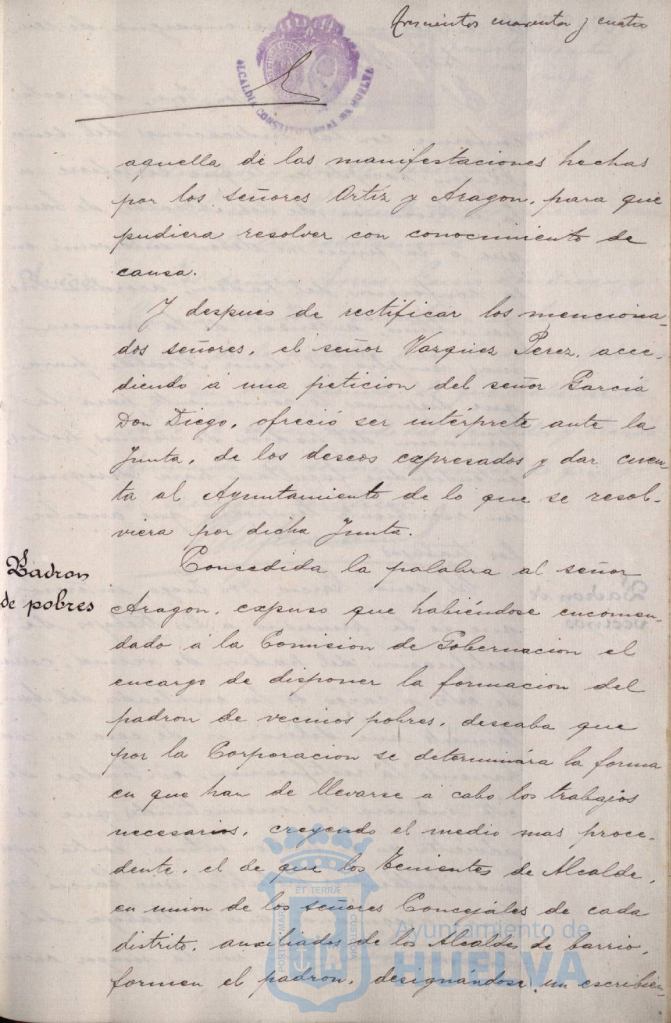 Trescientos cuarenta y cuatro
ALCALDIA CONSTITUCIONAL DE HUELVA
aquella de las manifestaciones hechas
por los señores Ortiz y Aragon, para que
pudiera resolver con conocimiento de
causa.
Y despues de rectificar los menciona-
dos señores, el señor Vazquez Perez, acce-
diendo á una peticion del señor García
Don Diego, ofreció ser intérprete ante la
Junta, de los deseos expresados y dar cuen-
ta al Ayuntamiento de lo que se resol-
viera por dicha Junta.
Padron
de pobres
Concedida la palabra al señor
Aragon, expuso que habiéndose encomen-
dado á la Comision de Gobernacion el
encargo de disponer la formacion del
padron de vecinos pobres, deseaba que
por la Corporacion se determinára la forma
en que han de llevarse á cabo los trabajos
necesarios, creyendo el medio mas proce-
dente, el de que los Tenientes de Alcalde,
en union de los señores Concejáles de cada
distrito, auxiliados de los Alcaldes de barrio,
formen el padron, designándose un escribien-
ET TERRÆ
PORTUS MARIS
CUSTODIA
Ayuntamiento de
HUELVA